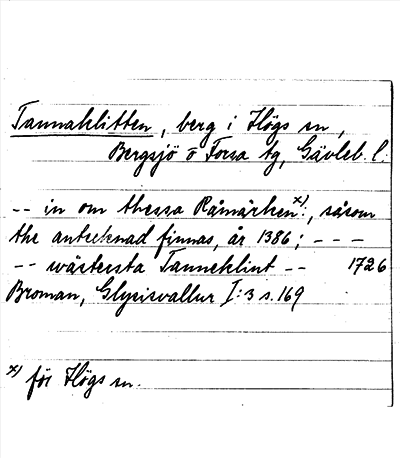 Tannaklitten, berg i Högs sn,
Bergsjö o Forsa tg, Gävleb. l.
-- in om thessa Råmärken x), såsom
the antecknad finnas, år 1386; - - -
-- wästersta Tanneklint -- 1726
Broman, Glysisvallur I:3 s. 169
x) för Högs sn.